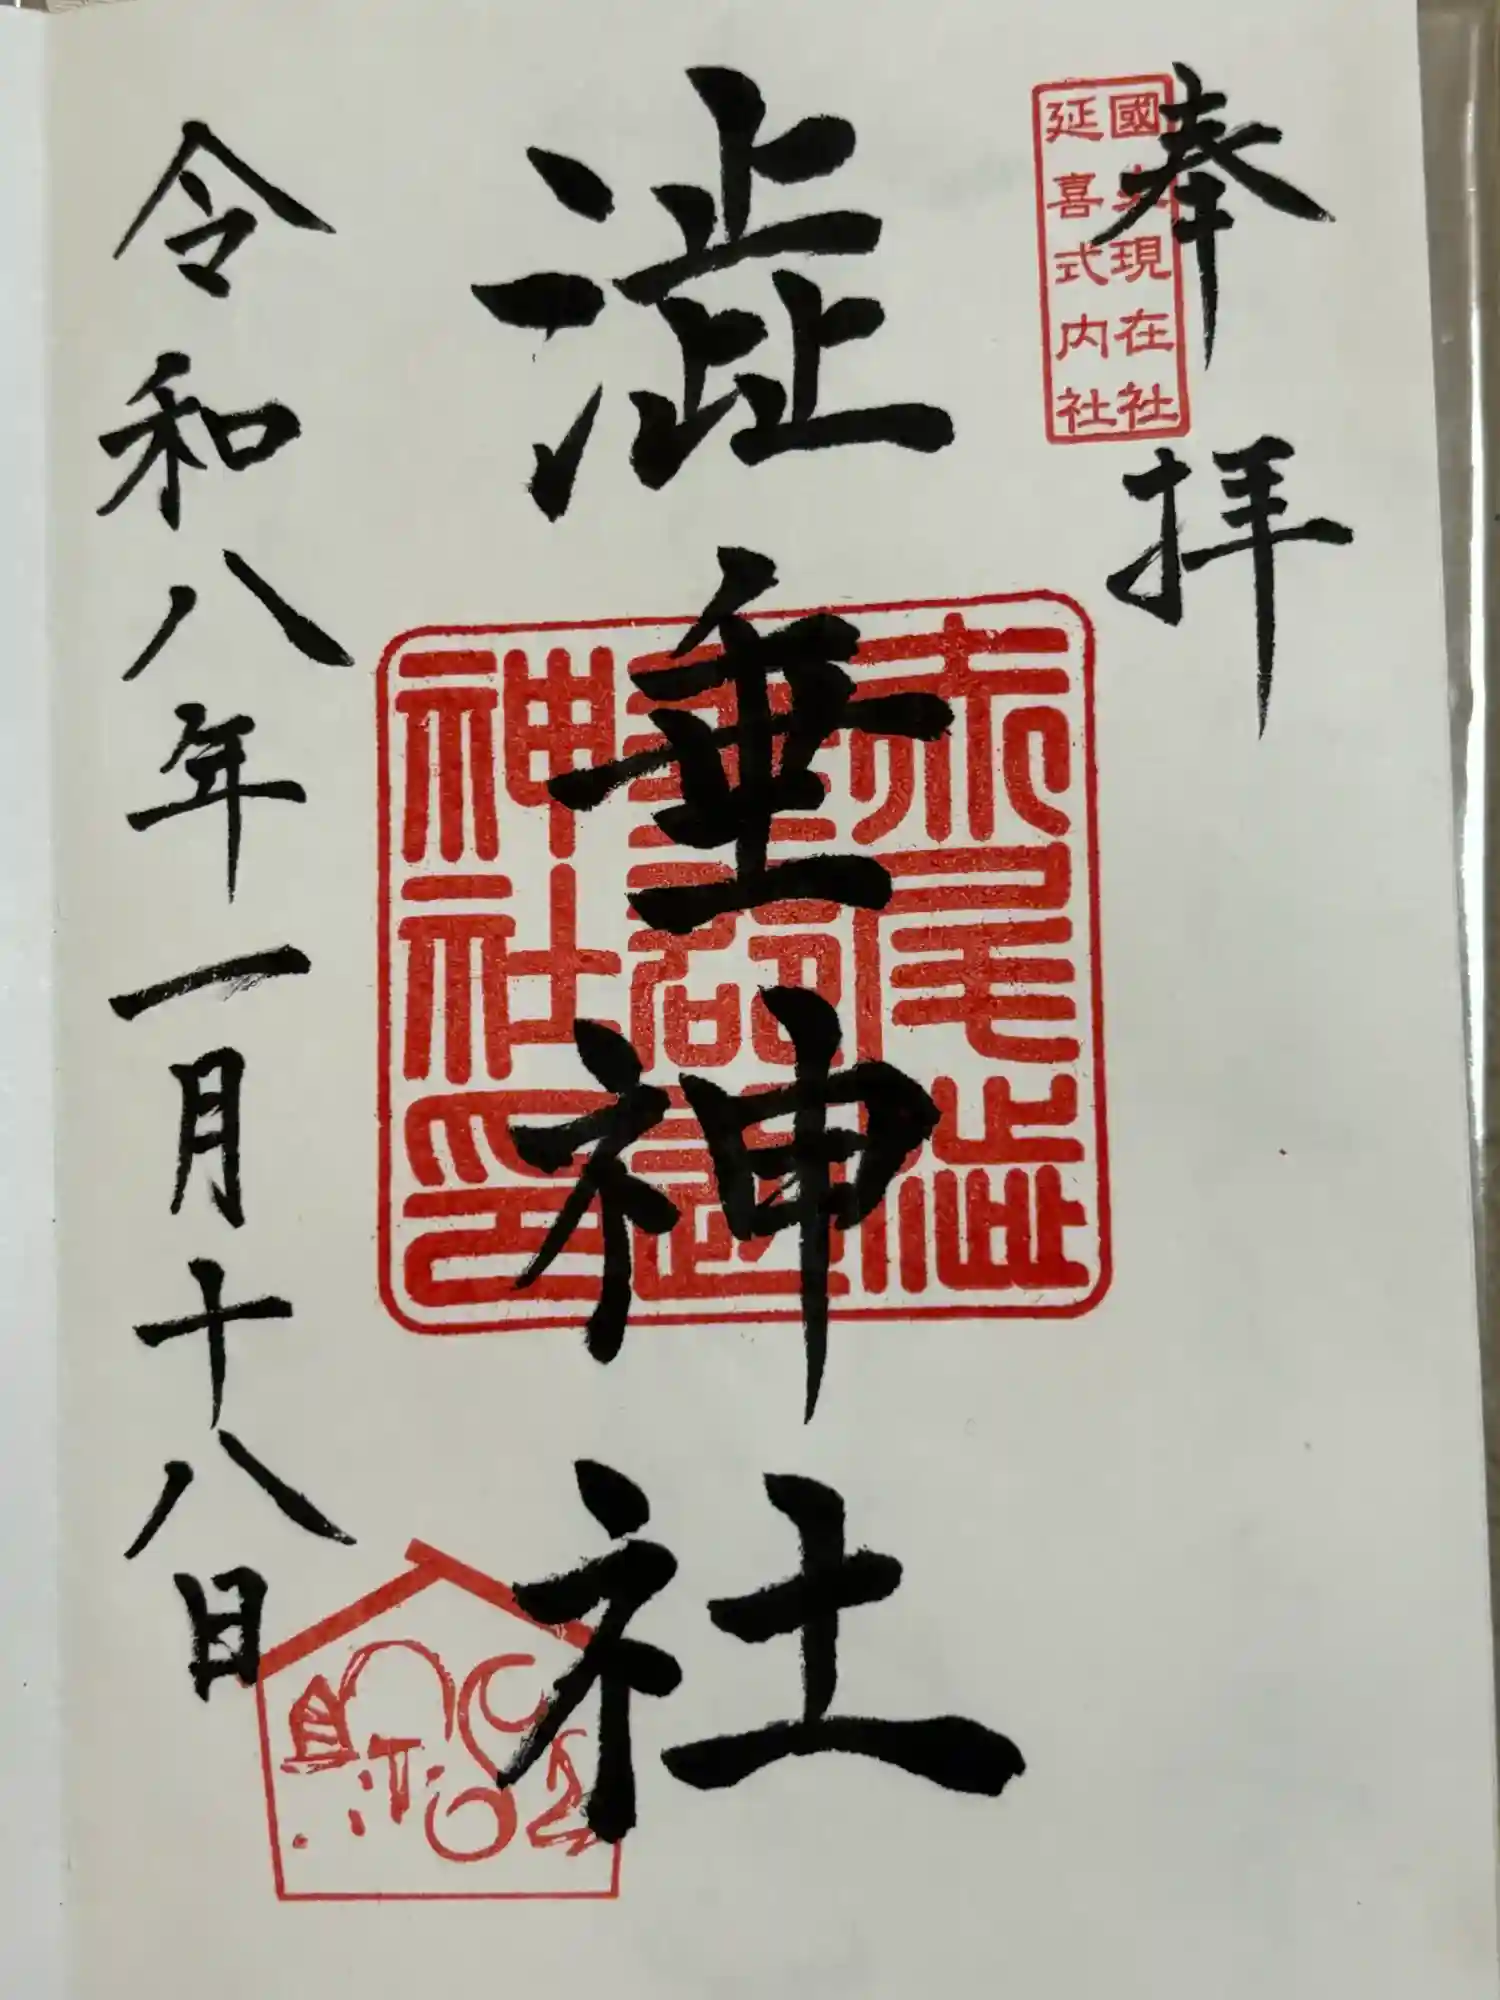 奉拝
國史現在社
延喜式内社
澁垂神社
神社印
令和八年一月十八日